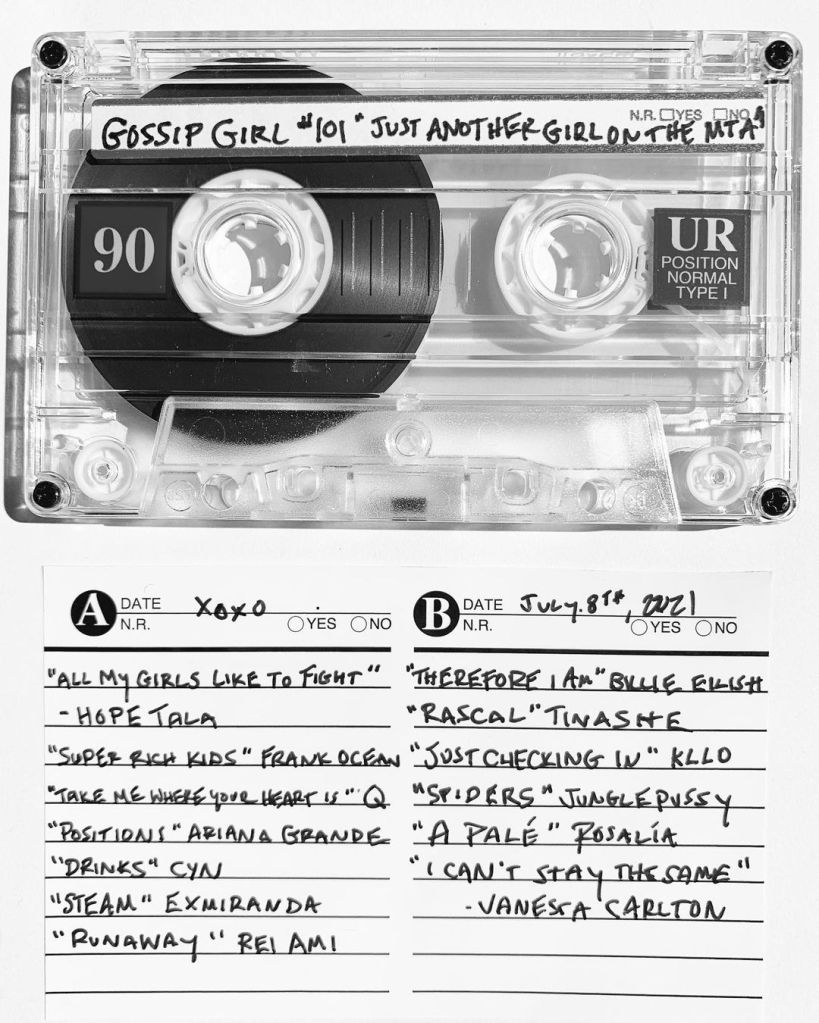 N.R. YES NO
GOSSIP GIRL #101 "JUST ANOTHER GIRL ON THE MTA"
90
UR
POSITION
NORMAL
TYPE I
A DATE XOXO
N.R. YES NO
"ALL MY GIRLS LIKE TO FIGHT"
- HOPE TALA
"SUPER RICH KIDS" FRANK OCEAN
"TAKE ME WHERE YOUR HEART IS" Q
"POSITIONS" ARIANA GRANDE
"DRINKS" CYN
"STEAM" EXMIRANDA
"RUNAWAY" REI AMI
B DATE JULY. 8TH, 2021
N.R. YES NO
"THEREFORE I AM" BILLIE EILISH
"RASCAL" TINASHE
"JUST CHECKING IN" KLLO
"SPIDERS" JUNGLEPUSSY
"A PALÉ" ROSALÍA
"I CAN'T STAY THE SAME"
- VANESSA CARLTON